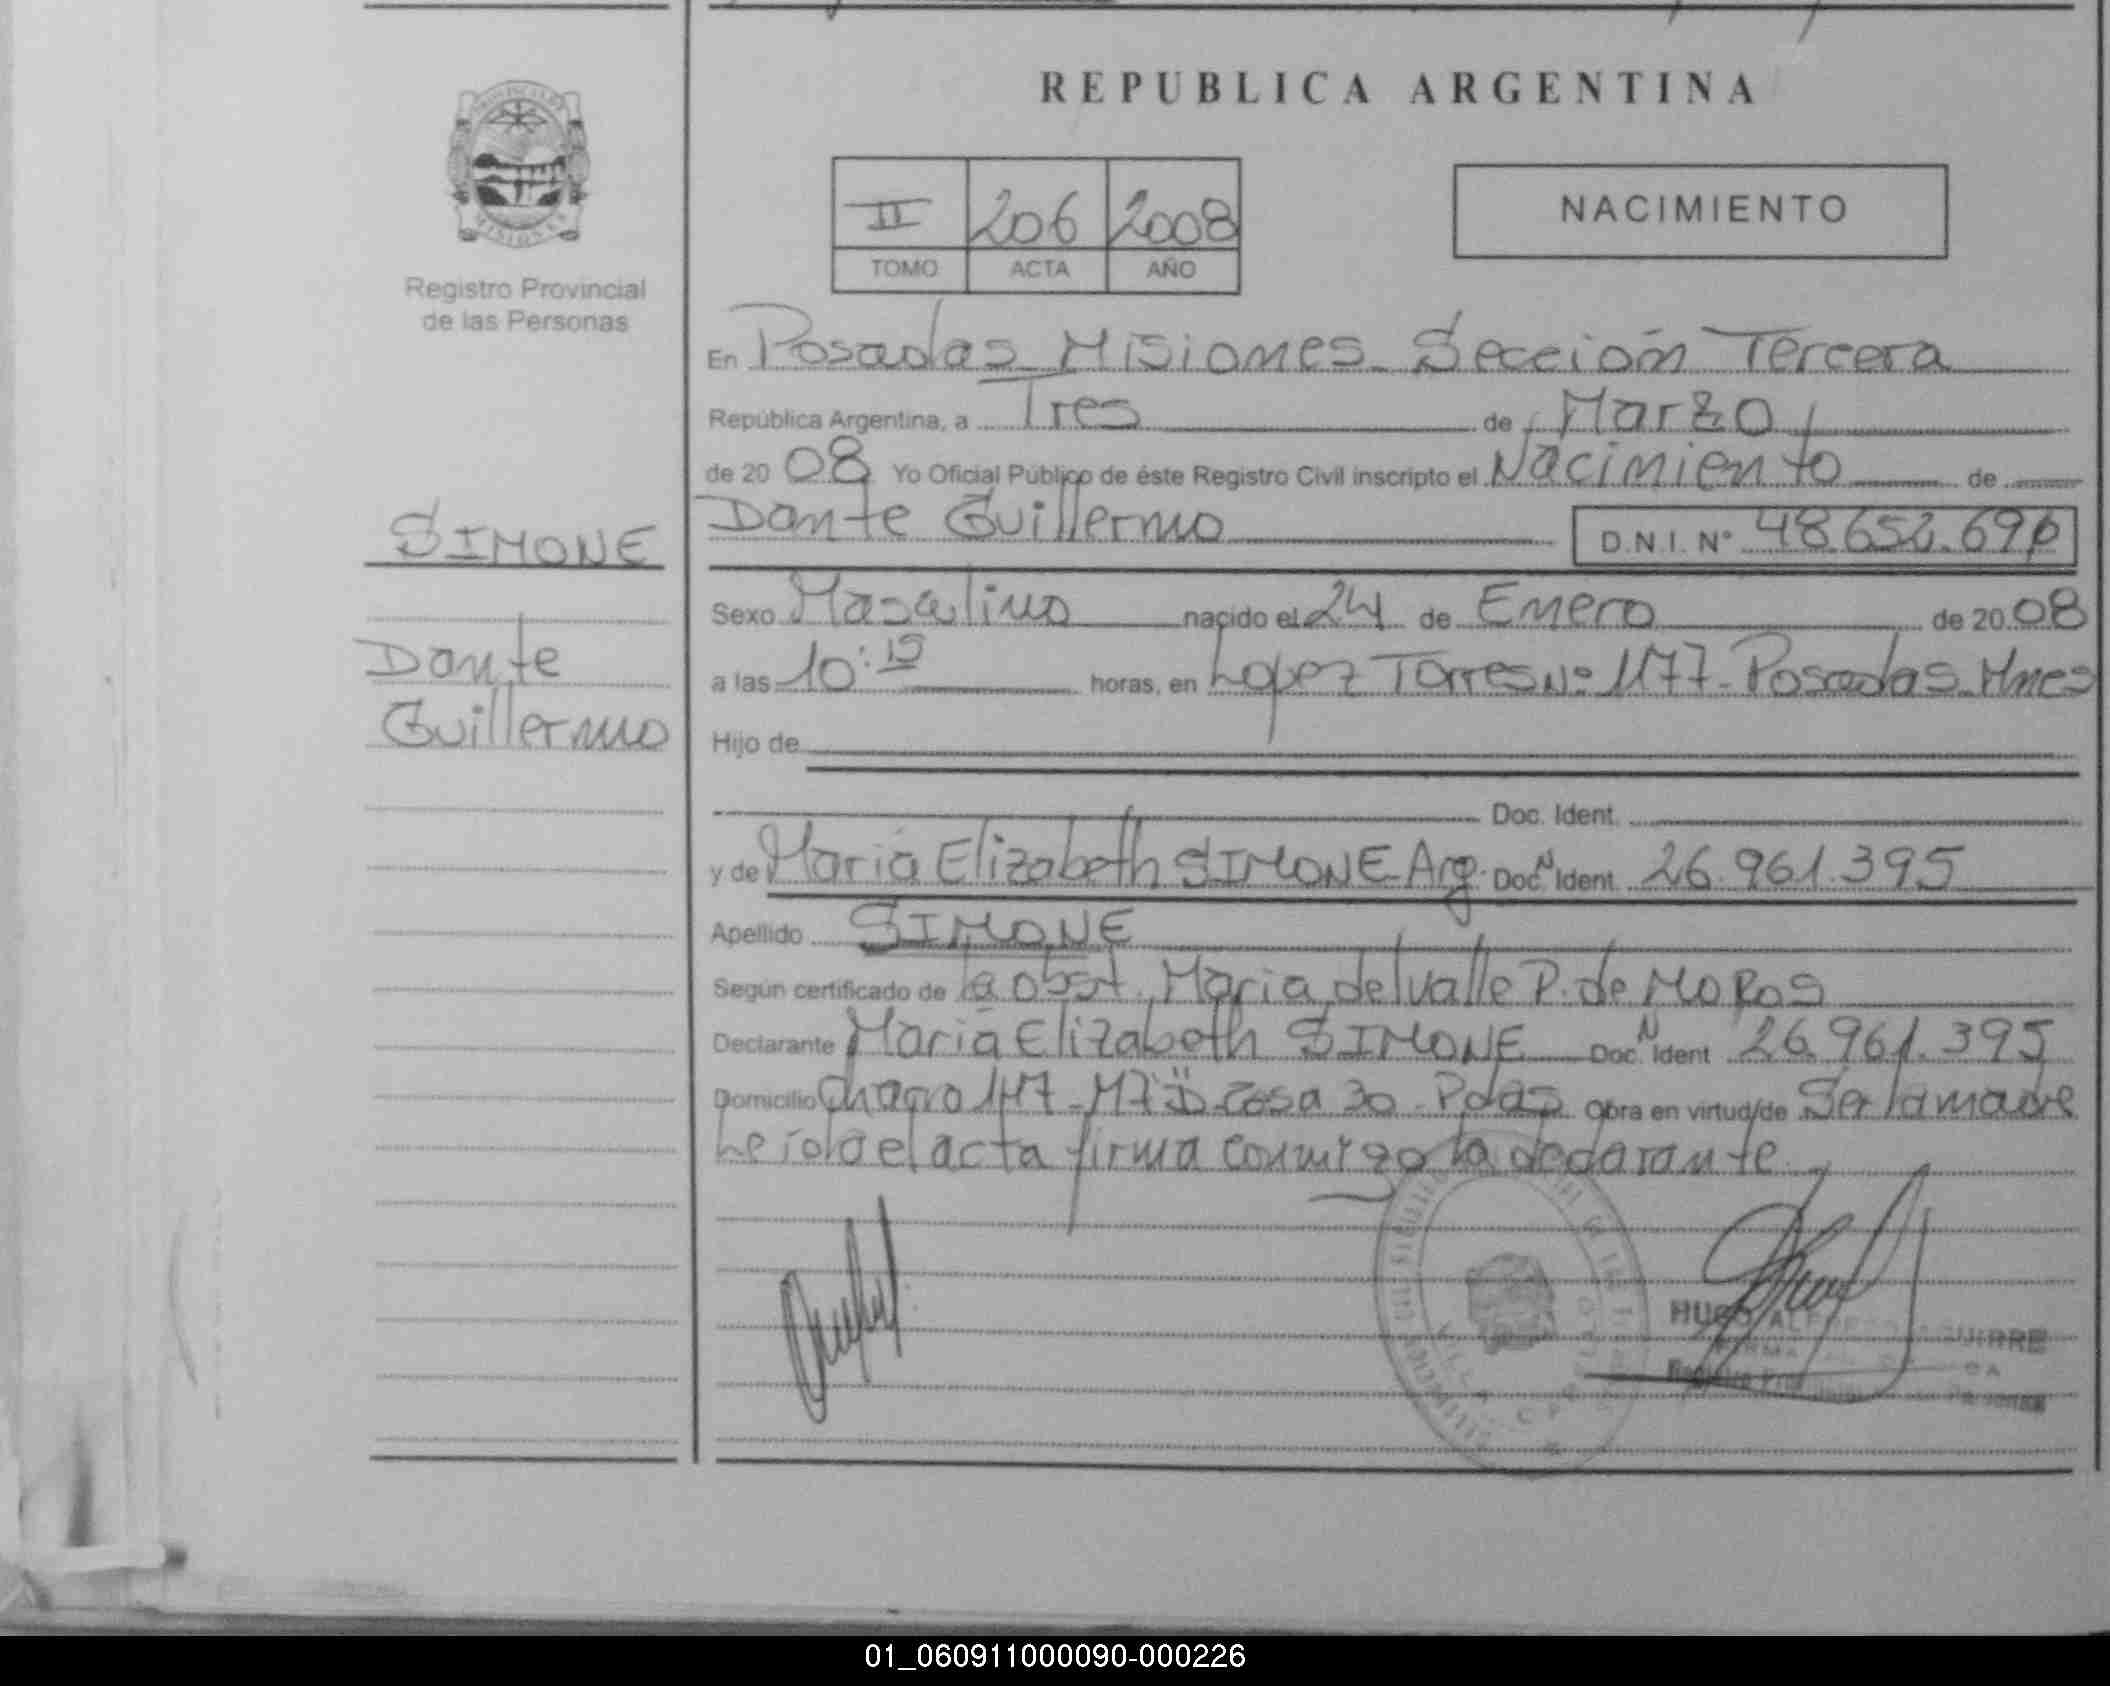 REPUBLICA ARGENTINA
PROVINCIA DE
MISIONES
Registro Provincial
de las Personas
II 206 2008
TOMO ACTA AÑO
NACIMIENTO
En Posadas Misiones Sección Tercera
República Argentina, a Tres de Marzo
de 2008 Yo Oficial Público de éste Registro Civil inscripto el Nacimiento de
SIMONE
Dante Guillermo D.N.I. Nº 48.652.69
Sexo Masculino nacido el 24 de Enero de 2008
Dante
Guillermo
a las 10:15 horas, en Lopez Torres Nº 1177-Posadas-Mnes
Hijo de
Doc. Ident.
y de Maria Elizabeth SIMONE Arg. Doc. N Ident 26.961.395
Apellido SIMONE
Según certificado de la obst. Maria del valle P. de MORAS
Declarante Maria Elizabeth SIMONE Doc. N Ident 26.961.395
Domicilio Chacra 117 casa 30 - Pdas Obra en virtud de Ser la madre
Leída el acta firma conmigo la declarante
HUGO ALFREDO AGUIRRE
01_060911000090-000226